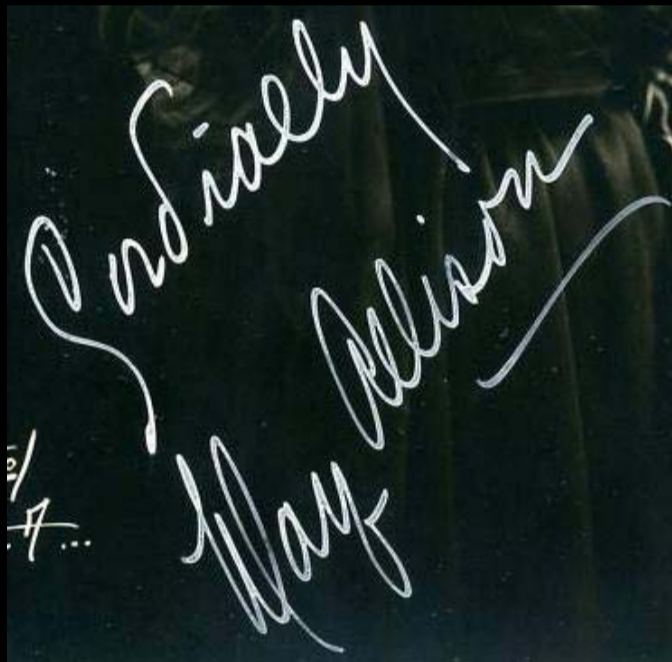 Cordially
May Allison